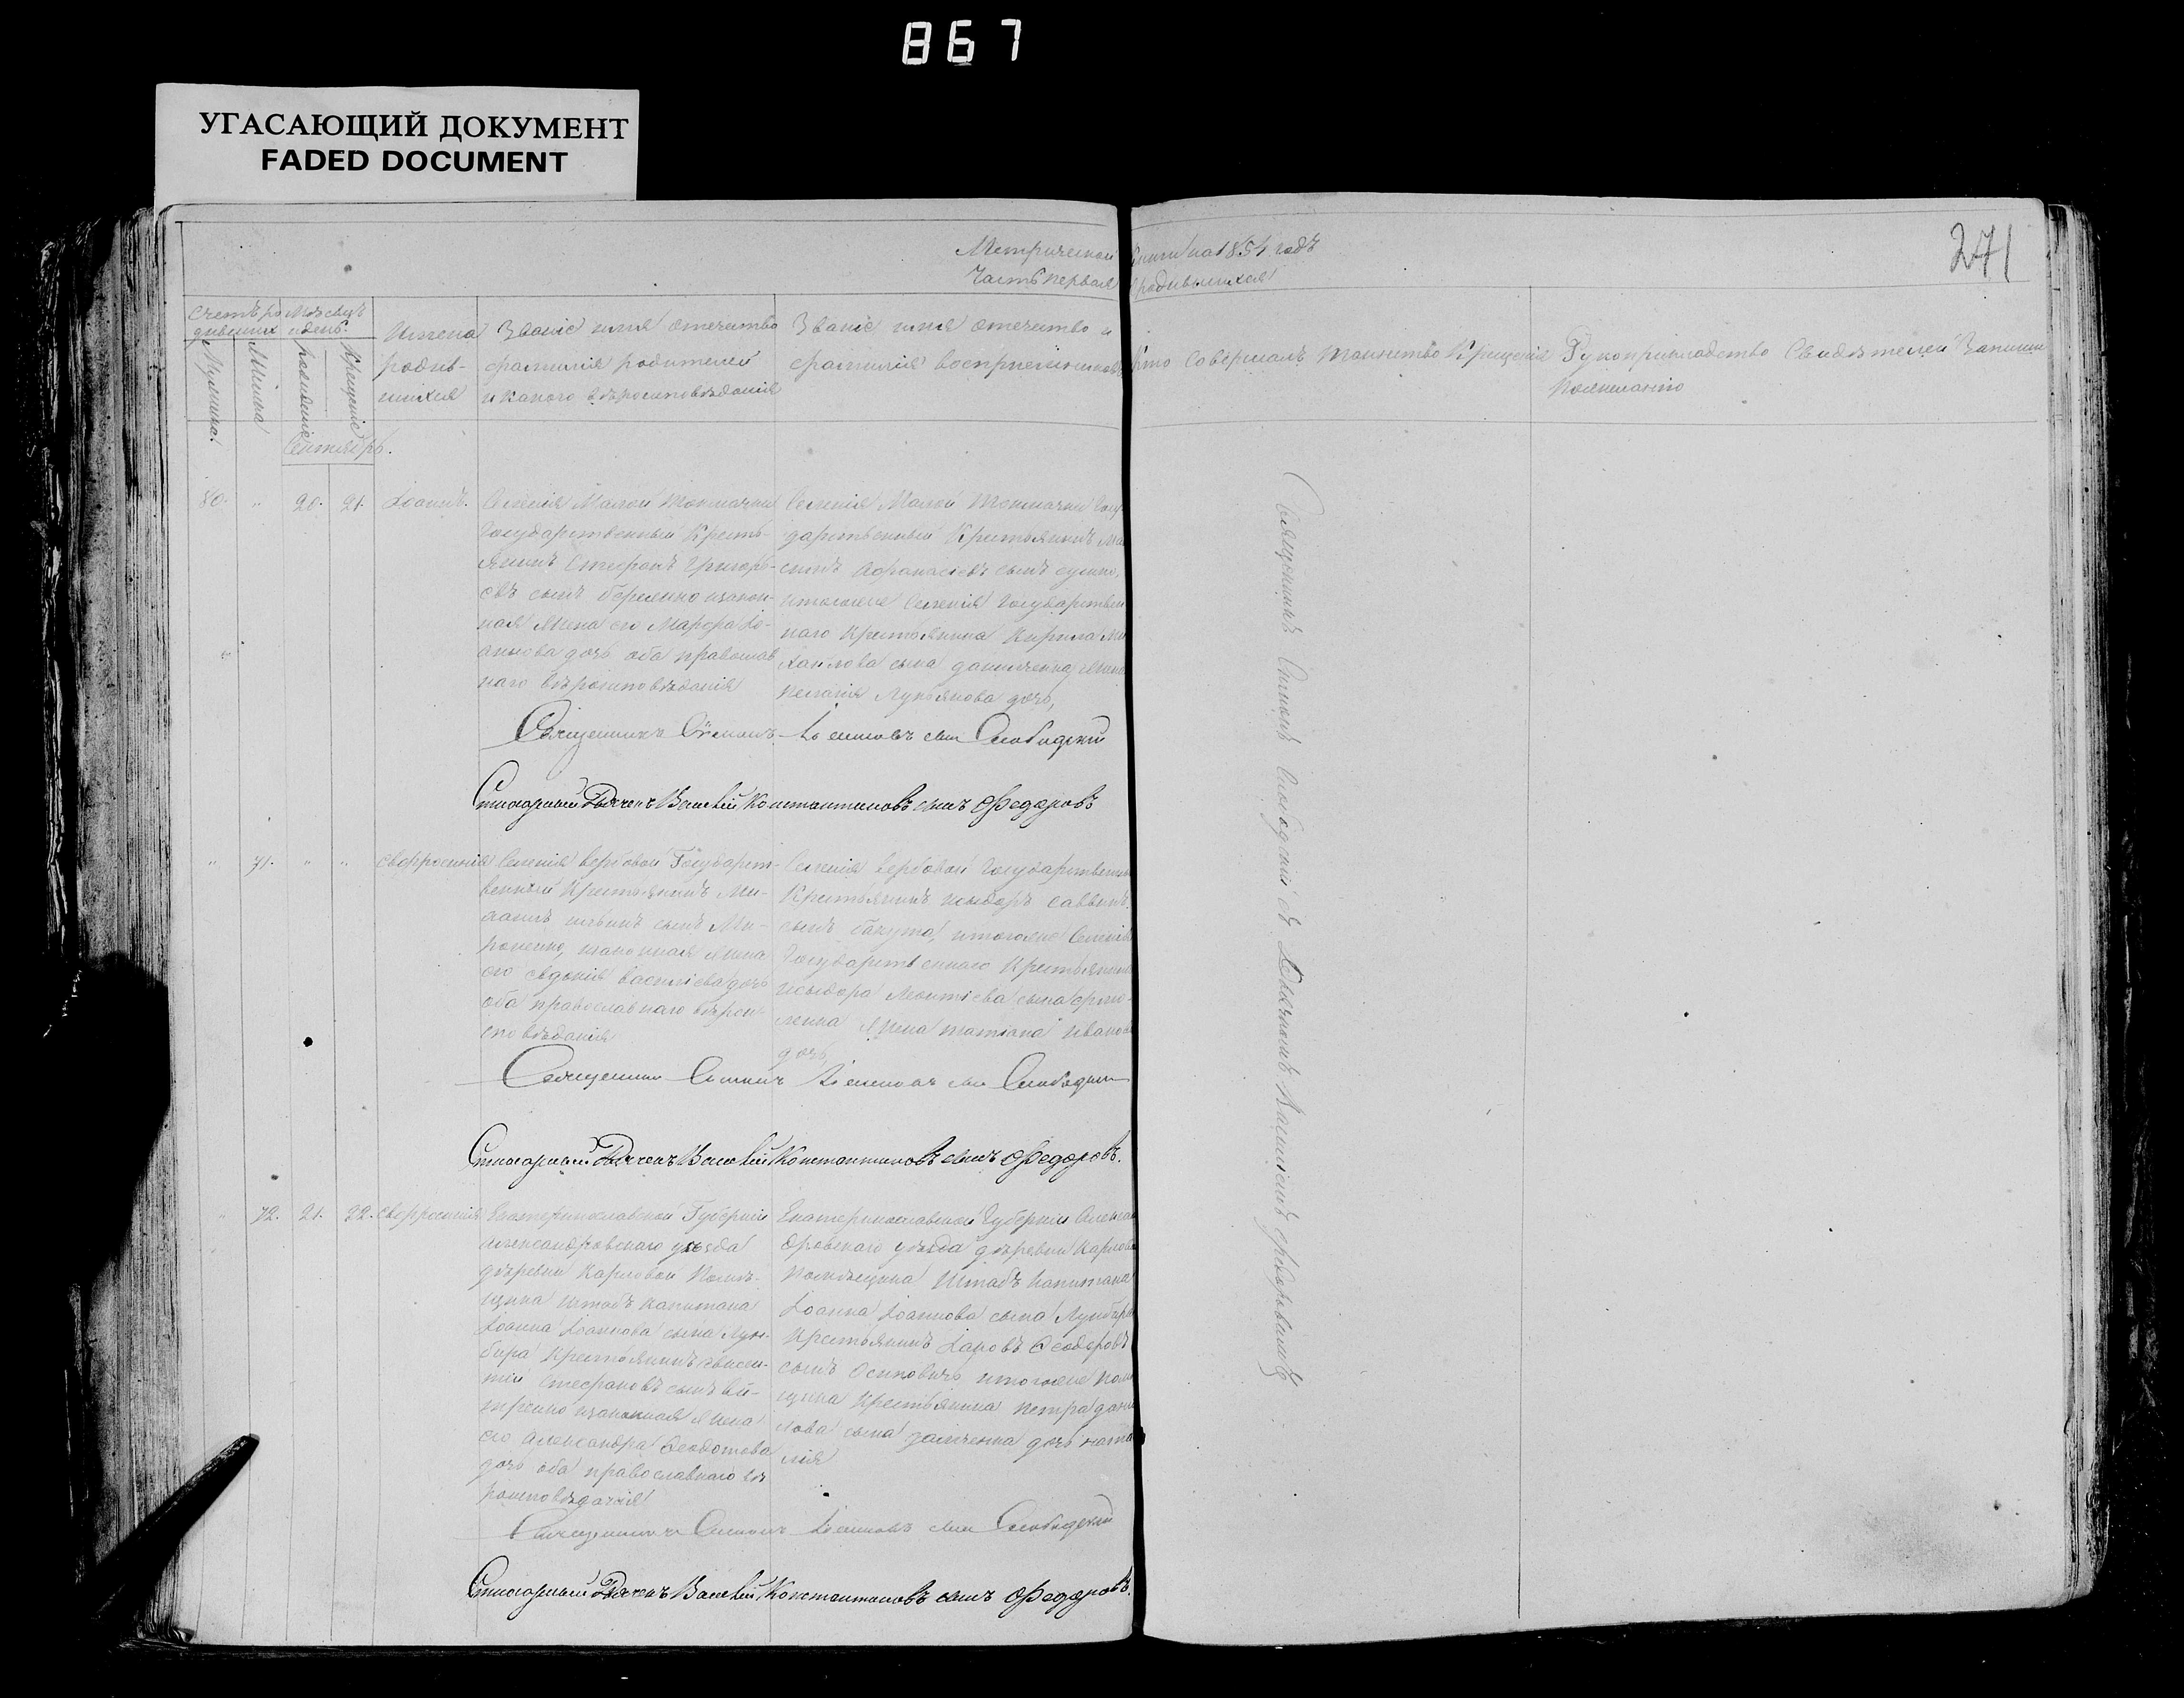 867
УГАСАЮЩИЙ ДОКУМЕНТ
FADED DOCUMENT
271
Метрической книги на 1854 годъ
Часть первая о родившихся
Счетъ родившихся
Мѣсяцъ и день
Мужеска
Женска
рожденіе
Крещеніе
Имена
родив-
шихся
Званіе имя отечество
фамилія родителей
и какого вѣроисповѣданія
Званіе имя отечество и
фамилія воспріемниковъ
Кто совершалъ таинство Крещенія
Рукоприкладство Свидѣтелей Записи
по желанію
Сентябрь.
80. " 20. 21. Іоаннъ.
Селенія Малой Токмачки
Государственный Кресть-
янинъ Стефанъ Григорь-
евъ сынъ изакон-
ная жена его Марфа Іо-
аннова дочь оба православ
наго вѣроисповѣданія
Селенія Малой Токмачки Госу-
дарственный Крестьянинъ
Афанасіевъ сынъ
итогоже Селенія Государствен
наго Крестьянина Кирила Ми
хайлова сына Даниленка жена
Пелагія Лукьянова дочь,
Священникъ Симонъ Іоанновъ сынъ Слободскій
Стихарный Дьячекъ Василій Константиновъ сынъ Федоровъ
" 71. " " Евфросинія
Селенія Вербовой Государст-
венный Крестьянинъ Ми-
хаилъ сынъ Ми-
роненко, изаконная жена
его Евдокія Васильева дочь
оба православнаго вѣрои-
сповѣданія
Селенія Вербовой Государственный
Крестьянинъ Исидоръ Саввинъ
сынъ Бакута, итогоже Селенія
Государственнаго Крестьянина
Исидора Леонтіева сына
жена Татіана Иванова
дочь
Священникъ Симонъ Іоанновъ сынъ Слободскій
Стихарный Дьячекъ Василій Константиновъ сынъ Федоровъ.
" 72. 21. 22. Евфросинія
Екатеринославской Губерніи
Александровскаго уѣзда
деревни Карловой Помѣ-
щика Штабъ Капитана
Іоанна Іоаннова сына
Крестьянинъ
Стефановъ сынъ
изаконная жена
его Александра Феодотова
дочь оба православнаго вѣ
роисповѣданія
Екатеринославской Губерніи Алексан
дровскаго уѣзда деревни Карловой
Помѣщика Штабъ Капитана
Іоанна Іоаннова сына
Крестьянинъ Іаковъ Феодоровъ
сынъ Осиповичъ итогоже помѣ
щика Крестьянина Петра Дани
лова сына дочь Ната
лія
Священникъ Симонъ Іоанновъ сынъ Слободскій
Стихарный Дьячекъ Василій Константиновъ сынъ Федоровъ.
Священникъ Симонъ Слободскій съ Дьячкомъ Василіемъ Федоровымъ